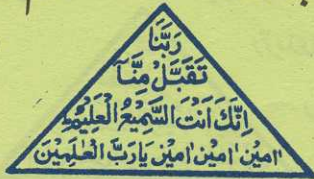 رَبَّنَا
تَقَبَّلْ مِنَّآ
اِنَّكَ اَنْتَ السَّمِيْعُ الْعَلِيْمُ ط
اٰمِيْن ' اٰمِيْن ' اٰمِيْن يَارَبَّ الْعٰلَمِيْنَ